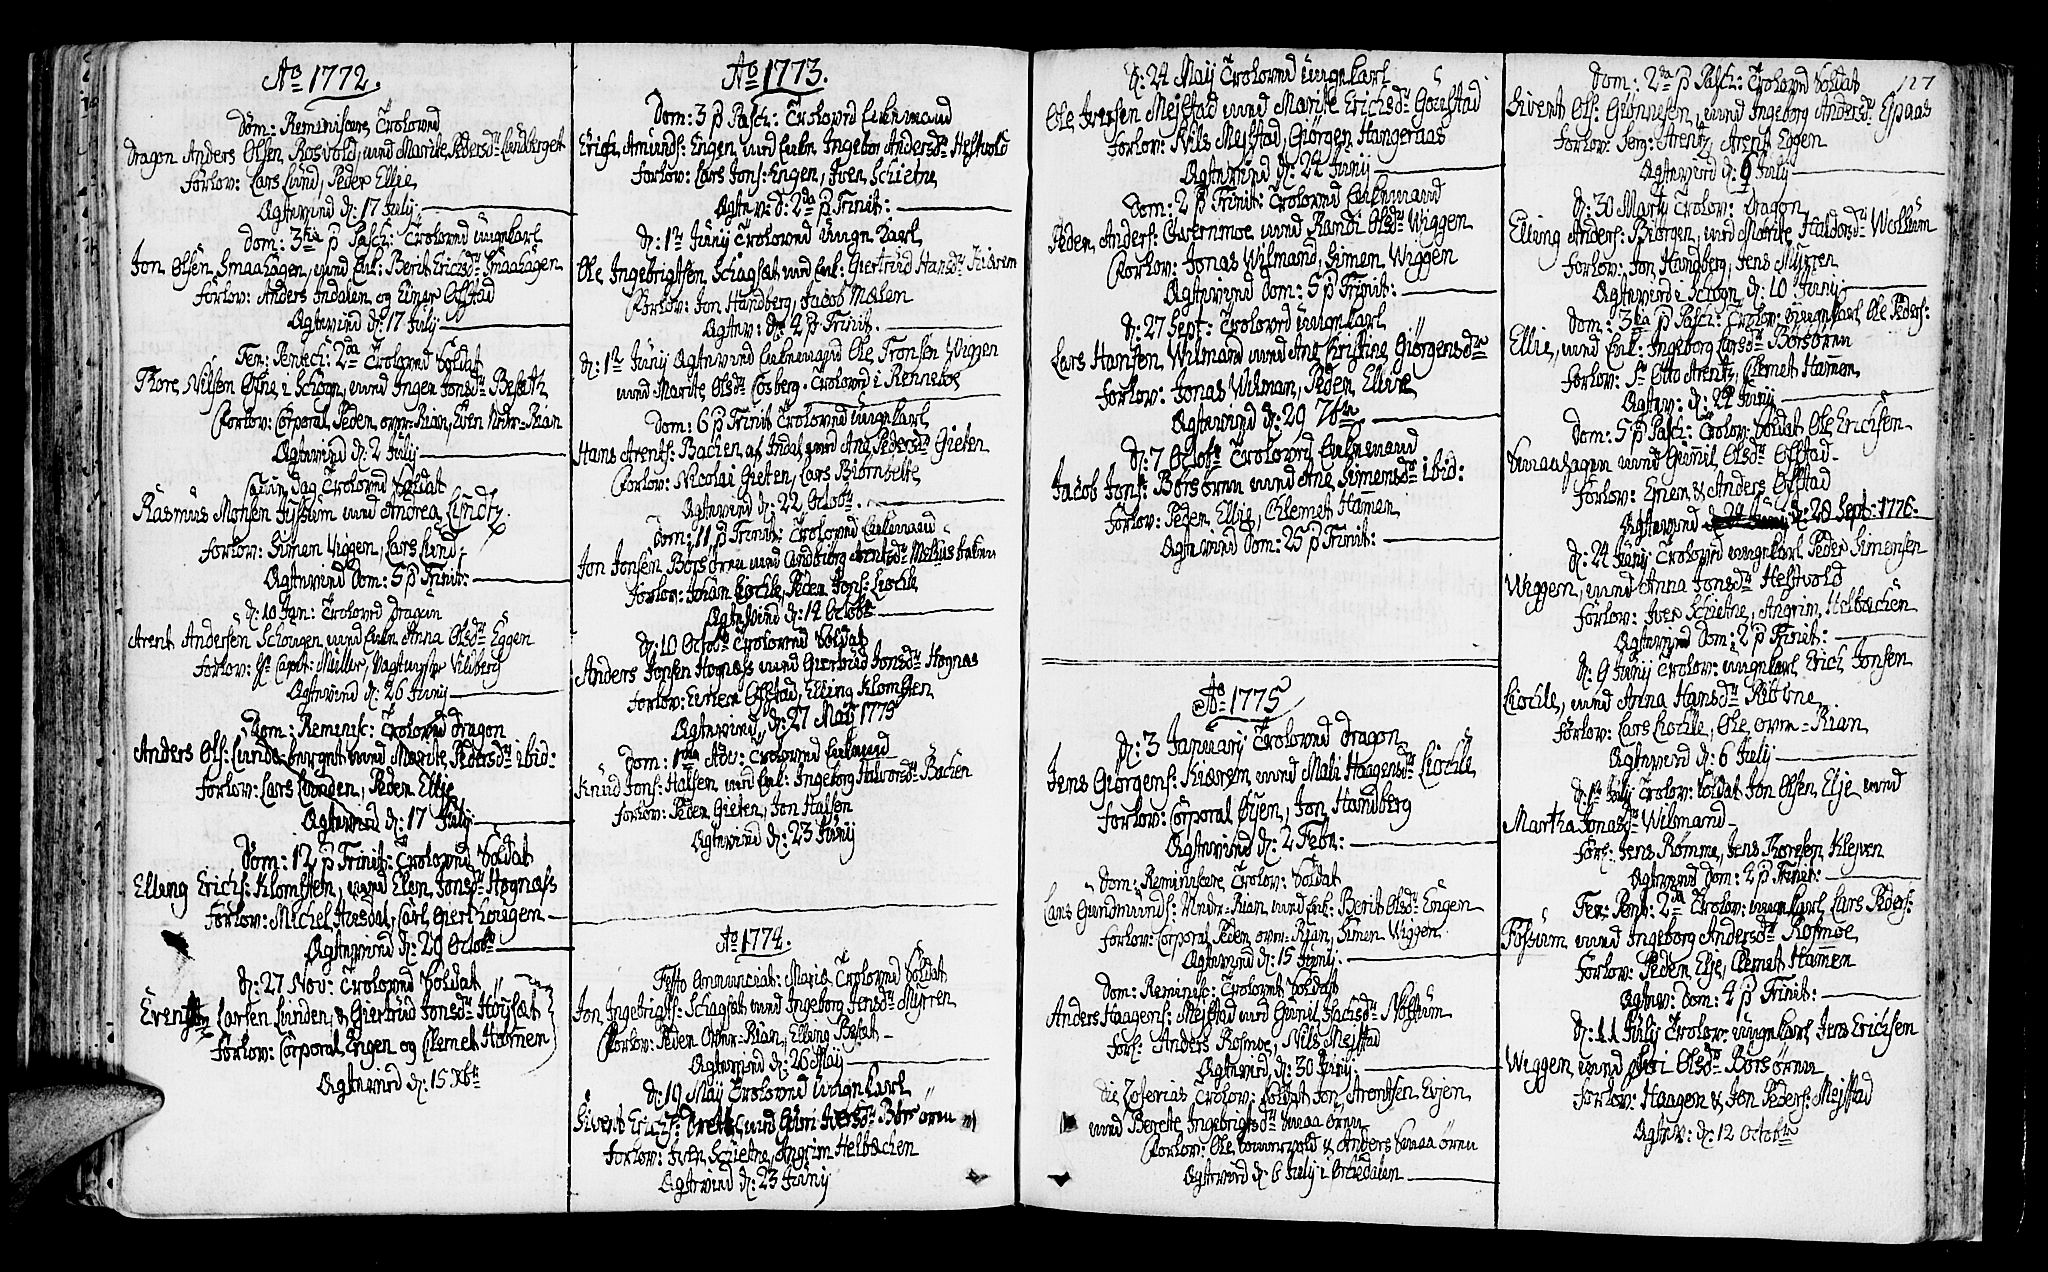 Ao 1772.
Dom: Reminiscere Troloved
Dragon Anders Olsen Rosvold, med Marite Pedersdr Lundberget
forlov: Lars Lund, Peder Ellie
Ægtewied d: 17 July
Dom: 3tia p Pasch: Troloved ungkarl
Jon Olsen Smaahagen, med Enk: Berit Ericsdr Smaahagen
forlov: Anders Indalen og Einer Ofstad
Ægtewied d: 17 July
Fer: Pentec: 2da Troloved Soldat
Thore Nilsen i Schogn, med Ingen Jonsdr Besetz
forlov: Corporal Peder over-Rian, Even Neder-Rian
Ægtewied d: 2 July
dag Troloved Soldat
Rasmus Monsen Fyssum med Andrea Lundtz
forlov: Simen Viggen, Lars Lund
Ægtewied Dom: 5 p Trinit:
d: 10 Jan: Troloved Dragon
Arent Andersen Schougen med Enken Anna Olsdr Eggen
forlov: Hr Capt: Müller, Vagtmester Vilsberg
Ægtewied d: 26 Juny
Dom: Reminisc: Trolovet Dragon
Anders Ols: Lunde-berget med Marite Pedersdr ibid:
forlov: Lars Lunden, Peder Ellie
Ægtewied d: 17 July
Dom: 12 p Trinit: Trolovd Soldat
Elling Erichs: Klomsten, med Elen Jonsdr Hognæss
forlov: Michel Hoesdal, Carl Gierthougen
Ægtewied d: 29 Octobr
d: 27 Nov: Trolovd Soldat
Even Larsen Lunden, & Giertrud Jonsdr Höysæt
forlov: Corporal Engen og Clemet Hammen
Ægtewied d: 15 Xbr
Ao 1773.
Dom: 3 p Pasch: Trolovd Enkemand
Erich Amunds: Engen med Enken Ingebor Andersdr Hestvold
forlov: Lars Jons: Engen, Iver Schietne
Ægtev: d: 2da p Trinit:
d: 1te Juny Trolovd ungn karl
Ole Ingebrigtsen Schagsæt med Enk: Giertrud Hansdr Kierem
forlov: Jon Handberg, Jacob Mælen
Ægtev: d: 4 p Trinit.
d: 1te Juny Ægtewied Enkemand Ole Tronsen Wiggen
med Marite Olsdr Cosberg. Trolovd i Renneboe
Dom: 6 p Trinit Trolovd ungkarl
Hans Arents: Bachen af Indal med Ane Pedersdr Gieten
forlov: Nicolai Gieten, Lars Biörnbeth
Ægtewied d: 22 Octobr
Dom: 11 p Trinit: Trolovd Enkemand
Jon Jonsen Borsören med Arentsdr
forlov: Johan Liochle, Peder Jons: Liochle
Ægtewied d: 14 Octobr
d: 10 Octobr Trolovd Soldat
Anders Jonsen Hognæss med Giertrud Jonsdr Hognæs
forlov: Einer Ofstad, Elling Klomsten
Ægtewied d: 27 May 1775
Dom: 1ma Adv: Trolovd Enkemand
Knud Jons: Halsen med Enk: Ingeborg Halvorsdr Bachen
forlov: Peder Gieten, Jon Halsen
Ægtewied d: 23 Juny
Ao 1774.
Festo Annunciat: Mariæ Trolovd Soldat
Jon Ingebrigts: Schagsæt med Ingeborg Jensdr Myrren
forlov: Peder Over-Rian, Elling Besæt
Ægtewied d: 26 May
d: 19 May Trolovd ungn karl
Sivert Erichs: med Guri Iversdr Börsören
forlov: Iver Schietne, Angrim Helbachen
Ægtewied d: 23 Juny
d: 24 May Trolovd ungnkarl
Ole Iversen Mejstad med Marite Erichsdr
forlov: Nils Mejstad, Giörgen Hangeraas
Ægtewied d: 24 Juny
Dom: 2 p Trinit: Trolovd Enkemand
Peder Anders: Qvernmoe med Randi Olsdr Wiggen
forlov: Jonas Wilmand, Simen Wiggen
Ægtewied Dom: 5 p Trinit:
d: 27 Sept: Trolovd ungnkarl
Lars Hansen Wilmand med Ane Kristine Giörgensdr
forlov: Jonas Wilman, Peder Ellie
Ægtewied d: 29 7br
d: 7 Octobr Trolovd Enkemand
Jacob Jons: Borsören med Ane Simensdr ibid:
forlov: Peder Ellie, Clemet Hammen
Ægtewied Dom: 25 p Trinit:
Ao 1775
d: 3 January Trolovd Dragon
Jens Giörgens: Kiærem med Mali Haagensdr Liochle
forlov: Corporal Öyen, Jon Handberg
Ægtewied d: 2 Febr:
Dom: Reminiscere Trolov: Soldat
Lars Gundmunds: Neder-Rian med Enk: Berit Olsdr Engen
forlov: Corporal Peder over-Rian, Simen Wiggen
Ægtewied d: 15 Juny
Dom: Reminisc: Trolovet Soldat
Anders Haagens: Mejstad med Gunil Isachsdr
forl: Anders Rosmoe, Nils Mejstad
Ægtewied d: 30 Juny
die Trolov: Soldat Jon Arentsen Evjen
med Berete Ingebrigtsdr Smaa ören
forlov: Ole & Anders Smaa ören
Ægtewied d: 6 July i Orkedalen
127
Dom: 2da p Pasch: Trolovd Soldat
Sivert Ols: Glönnesen, med Ingeborg Andersdr Espaas
forlov: Serg: Arentz, Arent Eggen
Ægtewied d: 9 July
d: 30 Marty Trolov: Dragon
Elling Anders: Biörgen, med Marite Haldorsdr Wollum
forlov: Jon Handberg, Jens Myrren
Ægtewied i Schogn, d: 10 Juny
Dom: 3tia p Pasch: Trolov: ungnkarl Ole Peders:
Ellie, med Enk: Ingeborg Larsdr Börsören
forlov: Sr Otto Arentz, Clemet Hammen
Ægtev: d: 22 Juny
Dom: 5 p Pasch: Trolov: Soldat Ole Erichsen
Smaahagen med Gunnil Olsdr Ofstad
forlov: Einer & Anders Ofstad
Ægtewied d: 28 Sept: 1776.
d: 24 Juny Trolovd ungnkarl Peder Simensen
Wiggen, med Anna Jonsdr Hestvold
forlov: Iver Schietne, Angrim Helbachen
Ægtewied Dom: 2 p Trinit:
d: 9 Juny Trolov: ungnkarl Erich Jonsen
Liochle, med Anna Hansdr
forlov: Lars Liochle, Ole over-Rian
Ægtewied d: 6 July
d: 1te July Trolov: Soldat Jon Olsen Elje med
Martha Jonasdr Wilmand
forl: Jens Römme, Jens Thoresen Klefven
Ægtewied Dom: 2 p Trinit:
Fer: Pent: 2da Trolov: ungnkarl Lars Peders:
Fossum med Ingeborg Andersdr Rosmoe
forlov: Peder Elje, Clemet Hammen
Ægtev: Dom: 4 p Trinit:
d: 11 July Trolov: ungnkarl Jens Erichsen
Wiggen med Olsdr Börsören
forlov: Haagen & Jon Peders: Mejstad
Ægtev: d: 12 Octobr